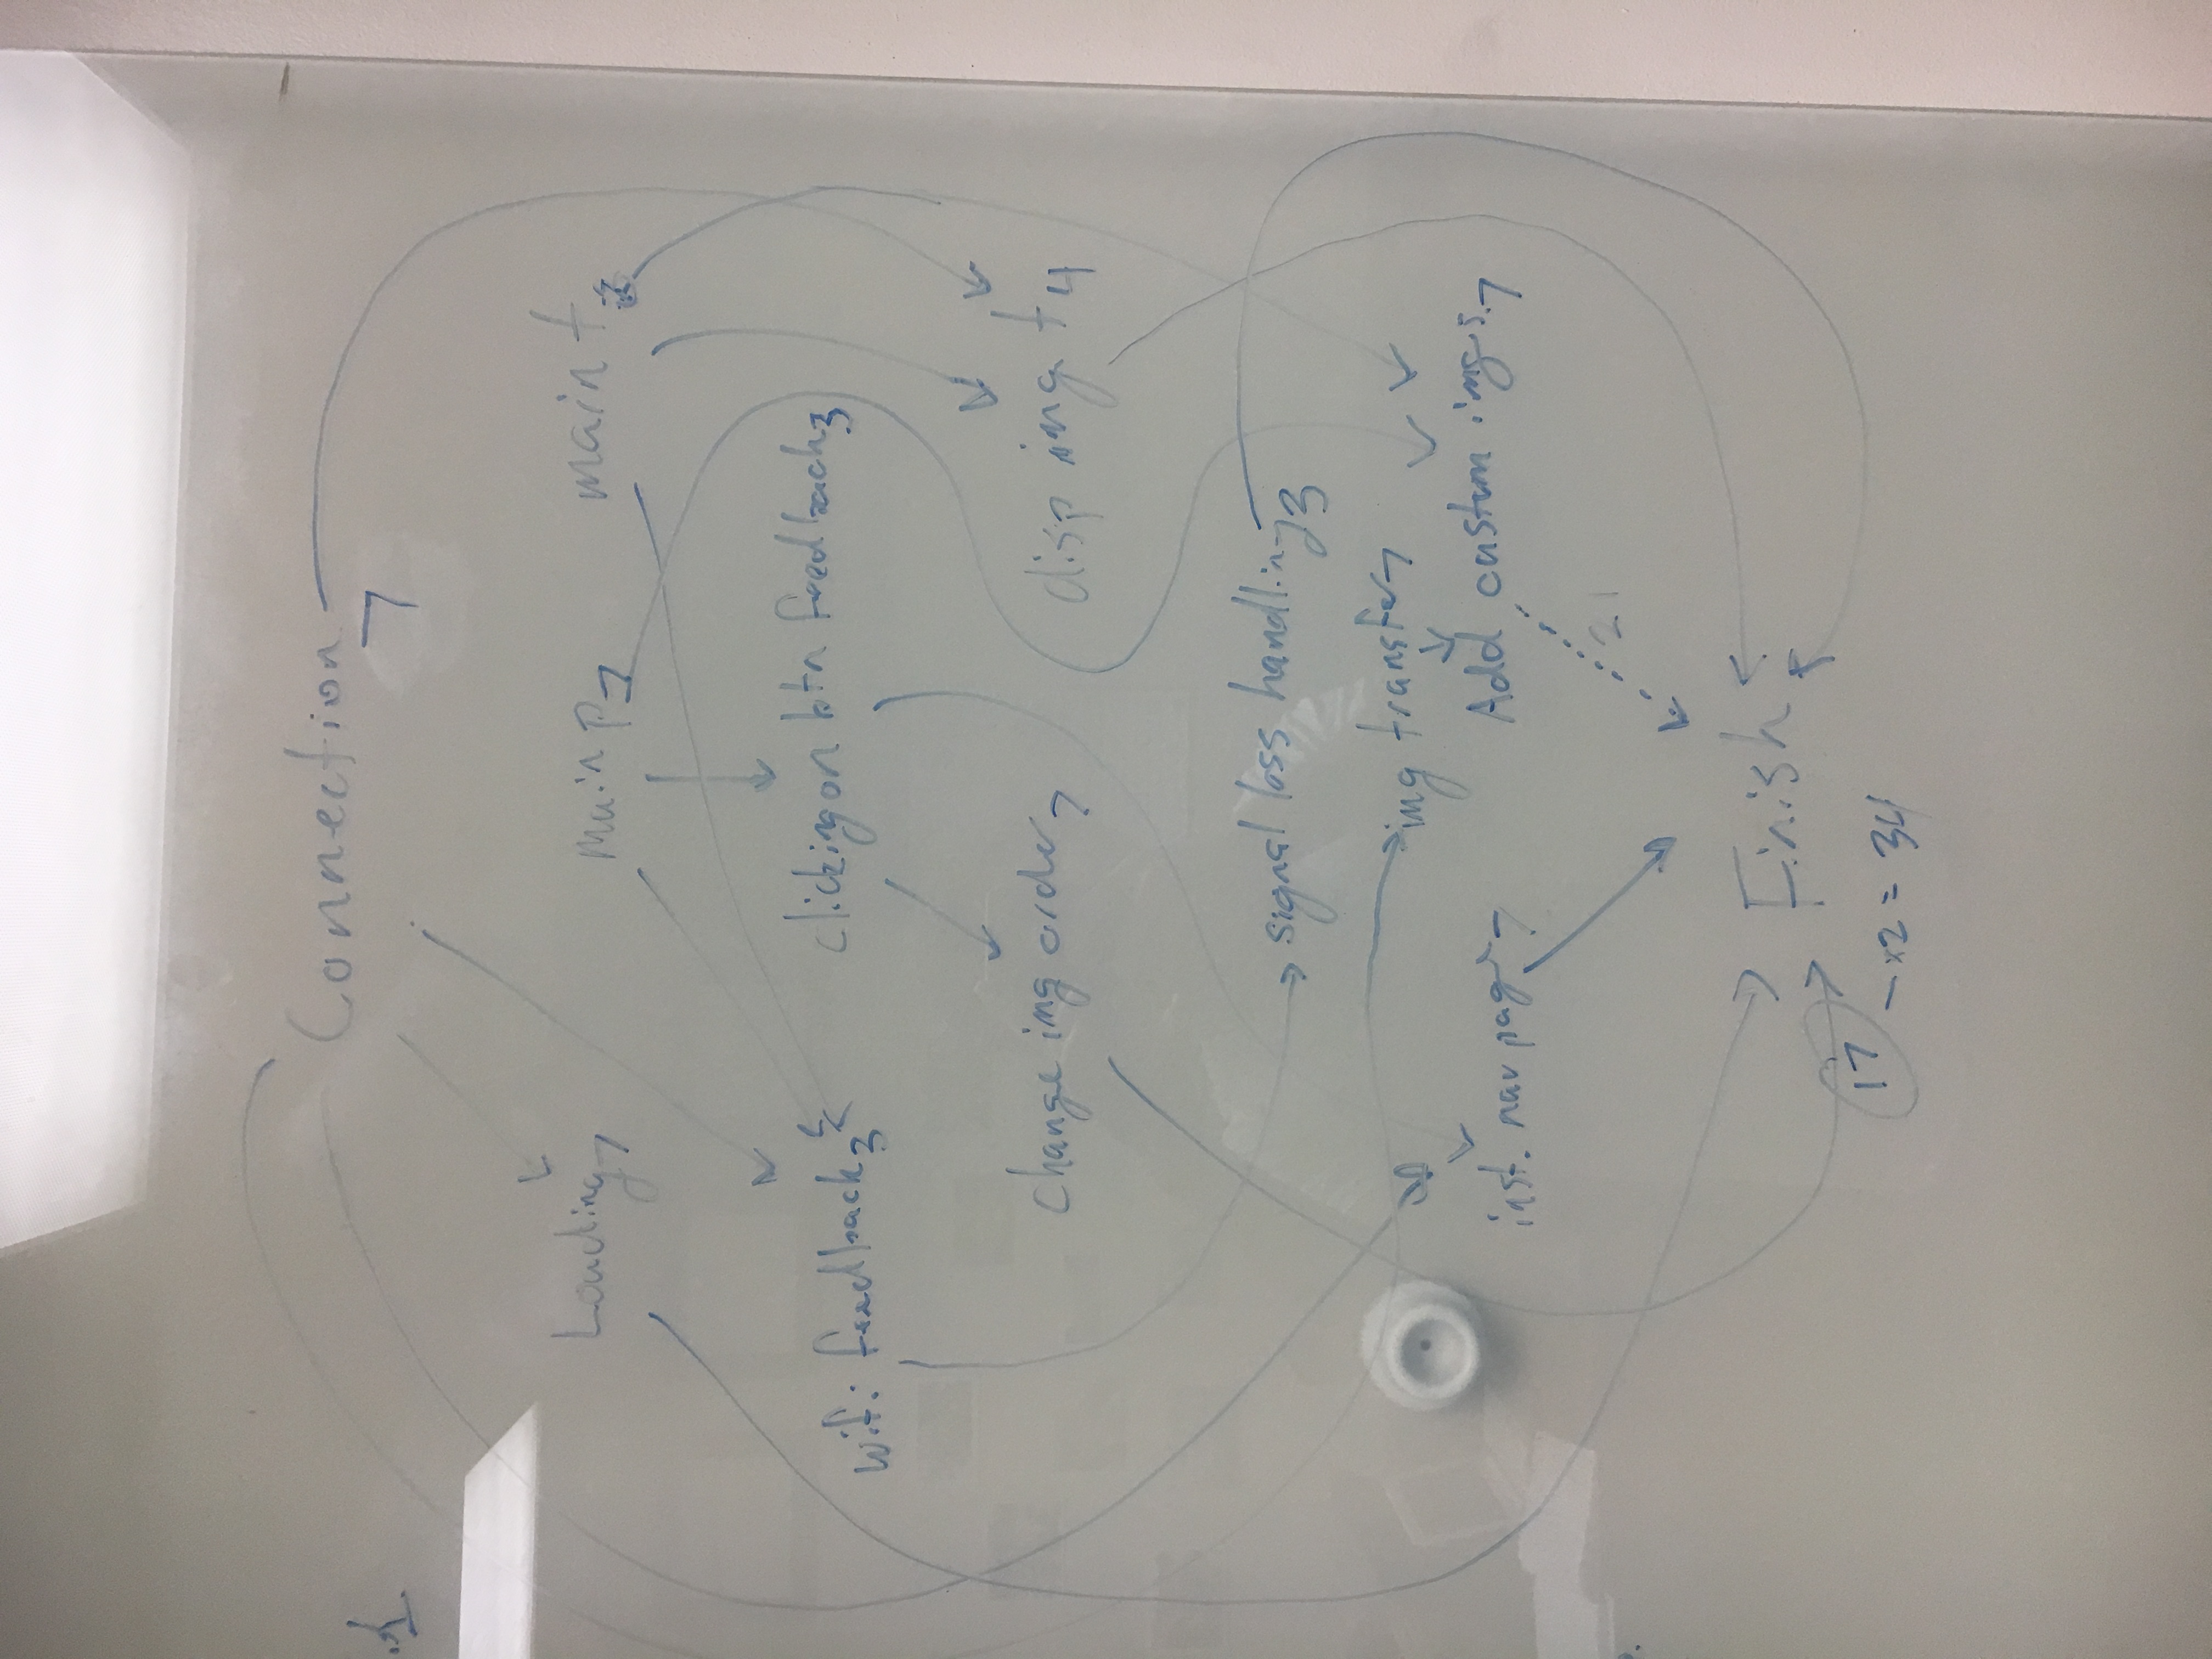 Connection
7
Loading 7
main p 7
main t
wifi feedback 3
clicking on btn feedback 3
change img order 7
disp img t 4
signal loss handling 3
img transfer 7
inst. nav page 7
Add custom imgs. 7
21
Finish
17 - x2 = 34